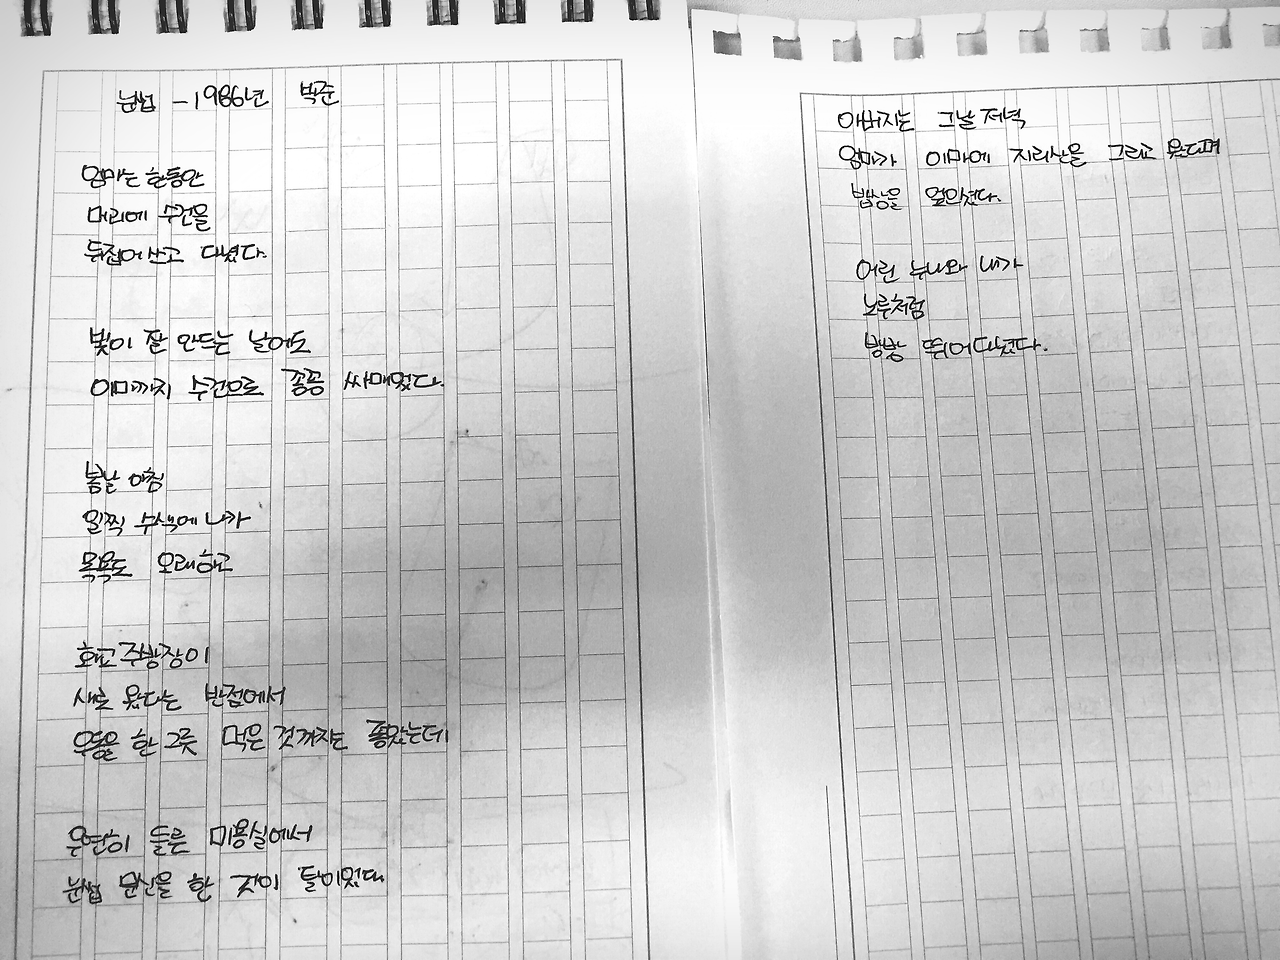 눈썹 -1986년 박준
엄마는 한동안
머리에 수건을
뒤집어쓰고 다녔다.
빛이 잘 안드는 날에도
이마까지 수건으로 꽁꽁 싸매었다.
봄날 아침
일찍 수색에 나가
목욕도 오래하고
화교 주방장이
새로 왔다는 반점에서
우동을 한 그릇 먹은 것까지는 좋았는데
우연히 들른 미용실에서
눈썹 문신을 한 것이 탈이었다
아버지는 그날 저녁
엄마가 이마에 지리산을 그리고 왔다며
밥상을 엎으셨다.
어린 누나와 내가
노루처럼
방방 뛰어다녔다.